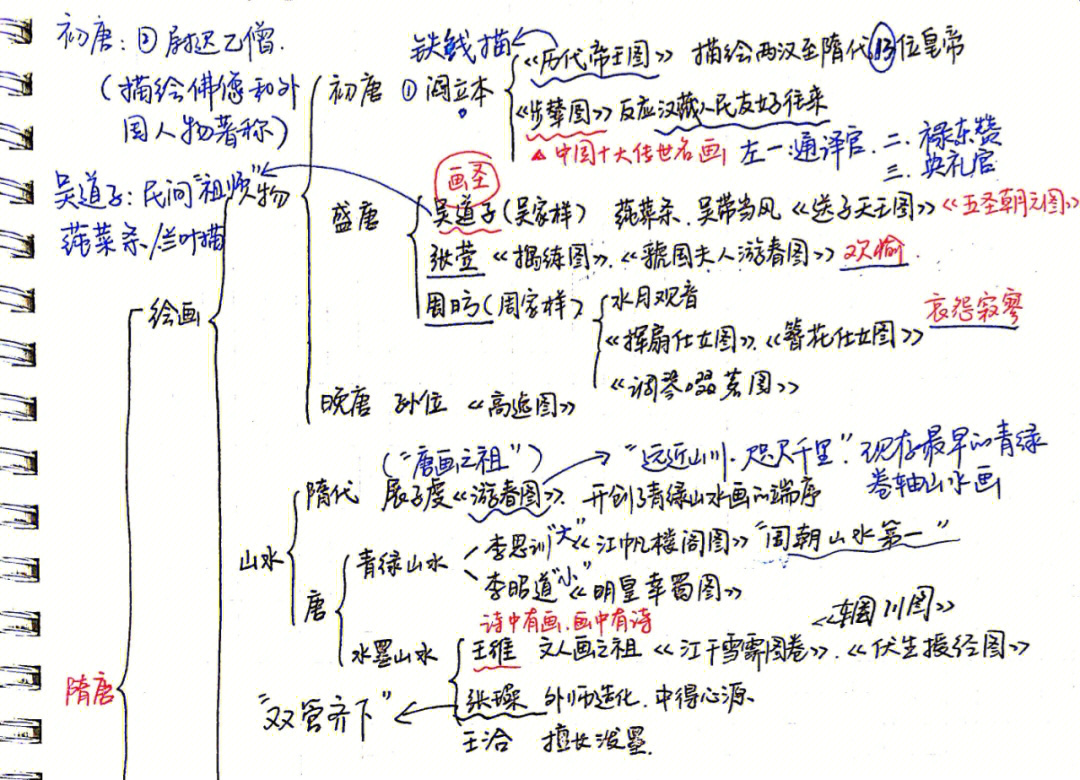 初唐：② 尉迟乙僧.
（描绘佛像和外
国人物著称）
吴道子：民间"祖师"
莼菜条/兰叶描
隋唐
绘画
人物
初唐 ① 阎立本
铁线描
《历代帝王图》 描绘两汉至隋代13位皇帝
《步辇图》反应汉藏人民友好往来
▲ 中国十大传世名画 左一：通译官. 二. 禄东赞
三. 典礼官
盛唐
画圣
吴道子（吴家样） 莼菜条、吴带当风《送子天王图》《五圣朝元图》
张萱 《捣练图》、《虢国夫人游春图》 欢愉.
周昉（周家样）
水月观音
《挥扇仕女图》、《簪花仕女图》 哀怨寂寥
《调琴啜茗图》
晚唐 孙位 《高逸图》
山水
（"唐画之祖"）
隋代 展子虔《游春图》、开创了青绿山水画的端序
"远近山川、咫尺千里". 现存最早的青绿
卷轴山水画
唐
青绿山水
李思训"大"《江帆楼阁图》"国朝山水第一"
李昭道"小"《明皇幸蜀图》
水墨山水
诗中有画、画中有诗
王维 文人画之祖 《江干雪霁图卷》、《伏生授经图》
《辋川图》
张璪 外师造化、中得心源.
"双管齐下"
王洽 擅长泼墨.